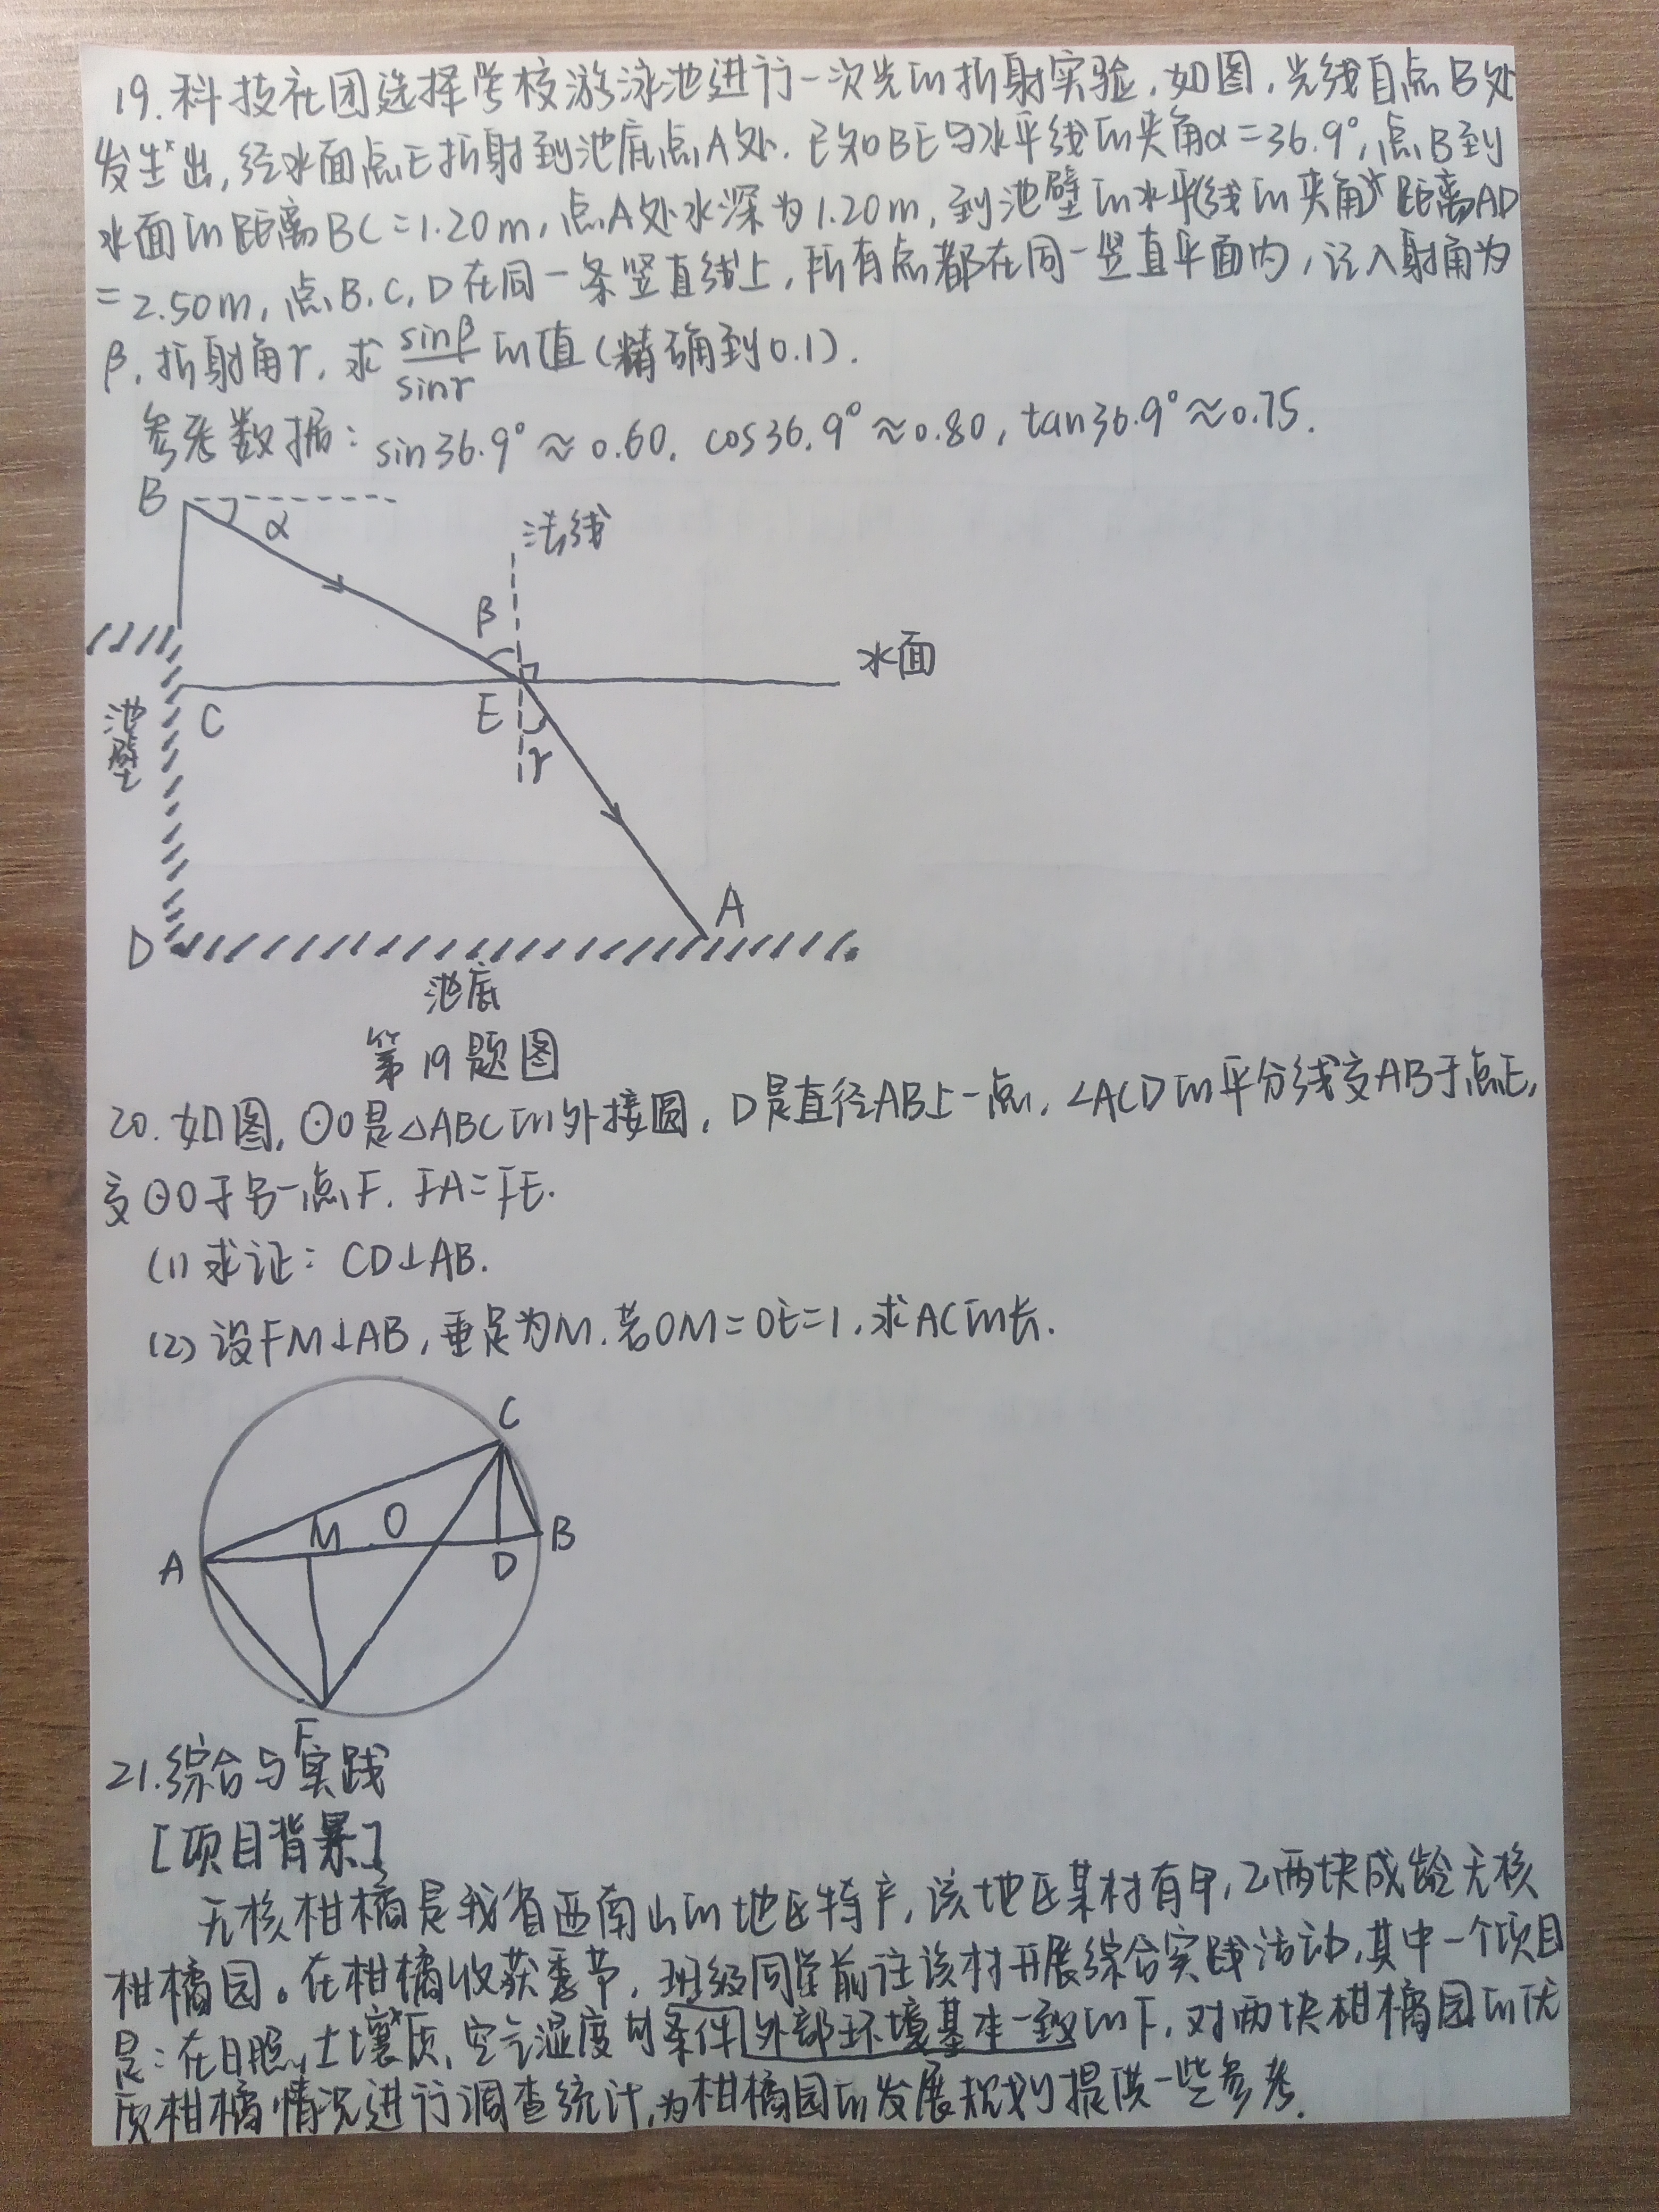 19.科技社团选择学校游泳池进行一次光的折射实验,如图,光线自点B处
发出,经水面点E折射到池底点A处.已知BE与水平线的夹角α=36.9°,点B到
水面的距离BC=1.20m,点A处水深为1.20m,到池壁的水平线的夹角距离AD
=2.50m,点B,C,D在同一条竖直线上,所有点都在同一竖直平面内,记入射角为
β,折射角γ,求sinβ/sinγ的值(精确到0.1).
参考数据:sin36.9°≈0.60,cos36.9°≈0.80,tan36.9°≈0.75.
B
α
法线
β
水面
C
E
γ
池壁
A
D
池底
第19题图
20.如图,⊙O是△ABC的外接圆,D是直径AB上一点,∠ACD的平分线交AB于点E,
交⊙O于另一点F.FA=FE.
(1)求证:CD⊥AB.
(2)设FM⊥AB,垂足为M.若OM=OE=1,求AC的长.
C
M O
A
D
B
F
21.综合与实践
[项目背景]
无核柑橘是我省西南山的地区特产,该地区某村有甲,乙两块成龄无核
柑橘园。在柑橘收获季节,班级同学前往该村开展综合实践活动,其中一个项目
是:在日照、土壤质、空气湿度等条件外部环境基本一致的下,对两块柑橘园的优
质柑橘情况进行调查统计,为柑橘园的发展规划提供一些参考.